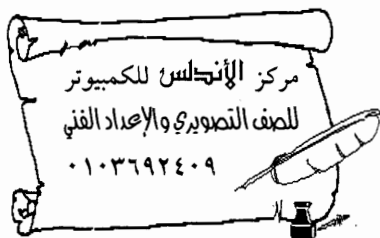 مركز الأندلس للكمبيوتر
للصف التصويري والإعداد الفني
٠١٠٣٦٩٢٤٠٩